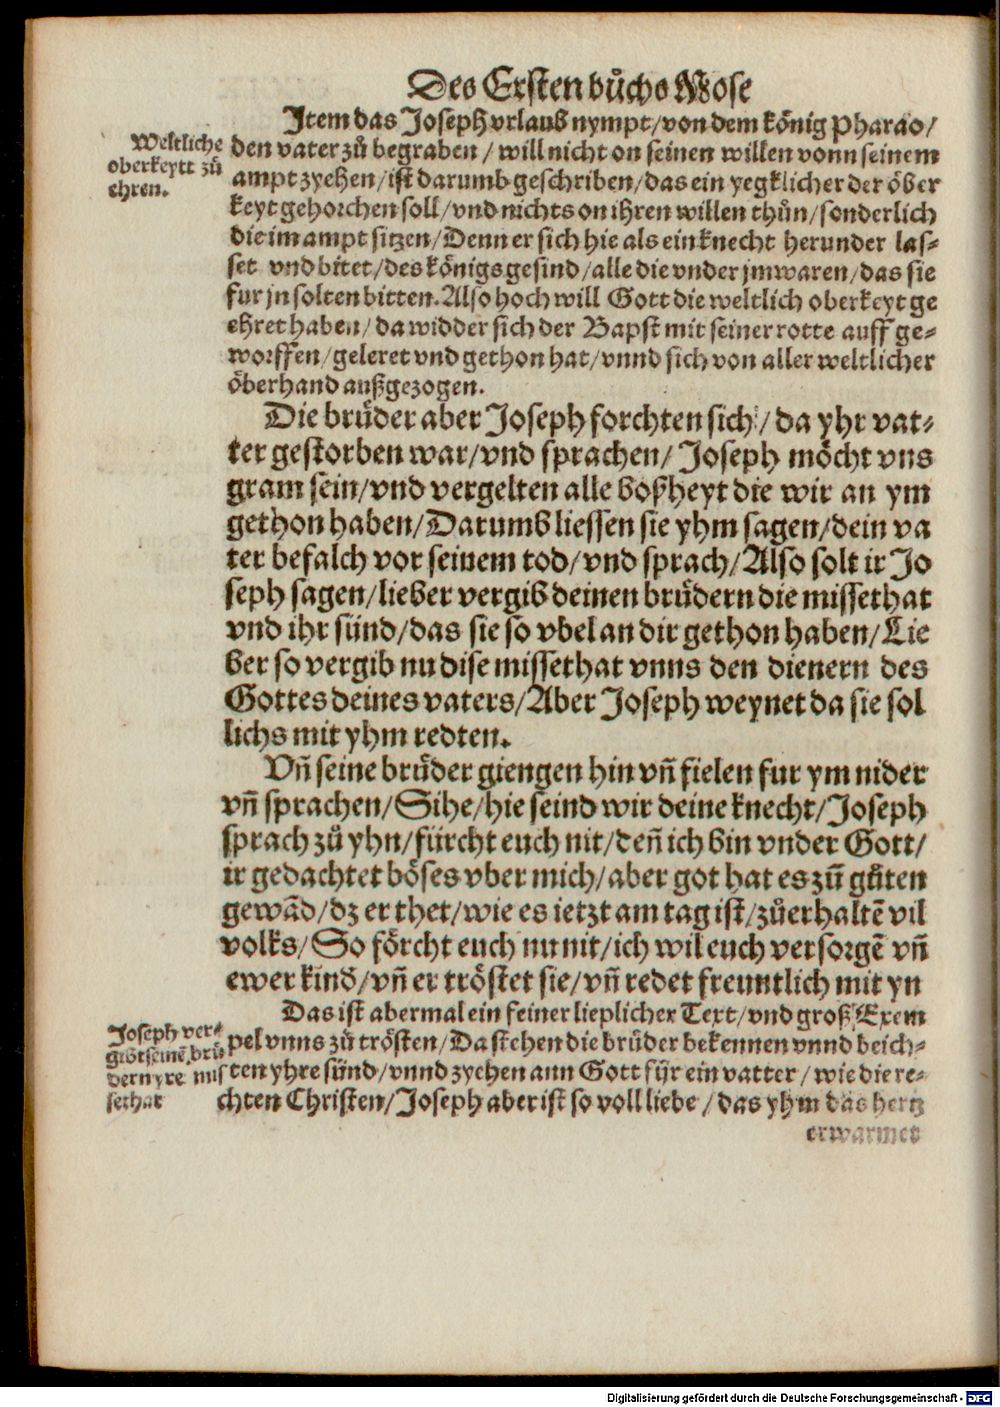 Des Ersten bůchs Mose
Item das Joseph vrlaub nympt/von dem könig Pharao/
Weltliche
oberkeytt zů
ehren.
den vater zů begraben / will nicht on seinen willen vonn seinem
ampt zyehen/ist darumb geschriben/das ein yegklicher der öber
keyt gehorchen soll/vnd nichts on ihren willen thůn/sonderlich
die im ampt sitzen/Denn er sich hie als ein knecht herunder las⸗
set vnd bitet/des königs gesind/alle die vnder jm waren/das sie
fur jn solten bitten. Also hoch will Gott die weltlich oberkeyt ge
ehret haben/da widder sich der Bapst mit seiner rotte auff ge⸗
worffen/geleret vnd gethon hat/vnnd sich von aller weltlicher
öberhand außgezogen.
Die brůder aber Joseph forchten sich/da yhr vat⸗
ter gestorben war/vnd sprachen/ Joseph möcht vns
gram sein/vnd vergelten alle boßheyt die wir an ym
gethon haben/Darumb liessen sie yhm sagen/dein va
ter befalch vor seinem tod/vnd sprach/Also solt ir Jo
seph sagen/lieber vergib deinen brůdern die missethat
vnd ihr sünd/das sie so vbel an dir gethon haben/Lie
ber so vergib nu dise missethat vnns den dienern des
Gottes deines vaters/Aber Joseph weynet da sie sol
lichs mit yhm redten.
Vñ seine brůder giengen hin vñ fielen fur ym nider
vñ sprachen/Sihe/hie seind wir deine knecht/Joseph
sprach zů yhn/fürcht euch nit/deñ ich bin vnder Gott/
ir gedachtet böses vber mich/aber got hat es zů gůten
gewãd/dz er thet/wie es ietzt am tag ist/zůerhaltẽ vil
volks/So förcht euch nu nit/ich wil euch versorgẽ vñ
ewer kind/vñ er tröstet sie/vñ redet freuntlich mit yn
Das ist abermal ein feiner lieplicher Text/vnd groß Exem
Joseph ver⸗
gibt seinẽ brů
dern yre mis
sethat
pel vnns zů trösten/Da stehen die brůder bekennen vnnd beich⸗
ten yhre sünd/vnnd zyehen ann Gott für ein vatter/wie die re⸗
chten Christen/Joseph aber ist so voll liebe/das yhm das hertz
erwarmet
Digitalisierung gefördert durch die Deutsche Forschungsgemeinschaft - DFG